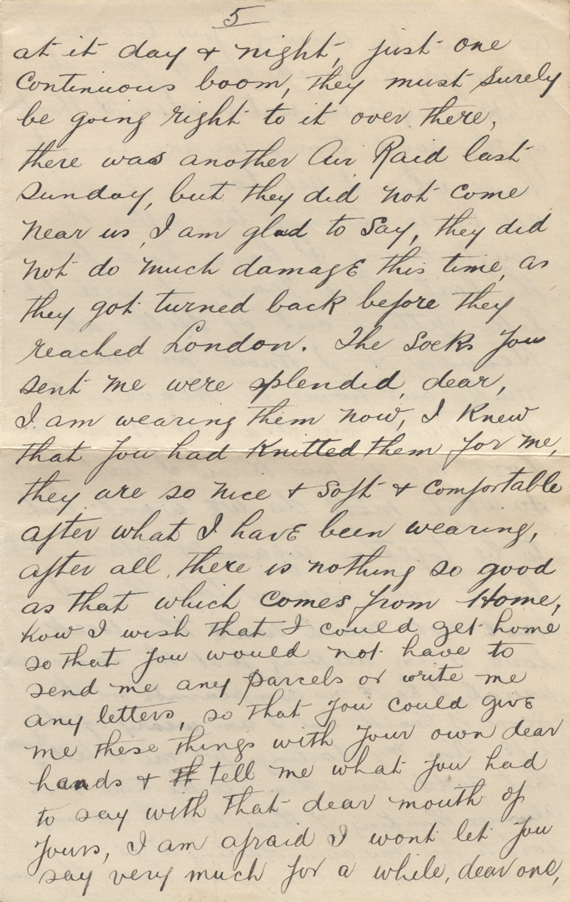 5
at it day & night, just one
continuous boom, they must surely
be going right to it over there,
there was another Air Raid last
Sunday, but they did not come
near us, I am glad to say, they did
not do much damage this time, as
they got turned back before they
reached London. The Socks you
sent me were splendid, dear,
I am wearing them now, I knew
that you had knitted them for me,
they are so nice & soft & comfortable
after what I have been wearing,
after all, there is nothing so good
as that which comes from Home,
how I wish that I could get home
so that you would not have to
send me any parcels or write me
any letters, so that you could give
me these things with your own dear
hands & tell me what you had
to say with that dear mouth of
yours, I am afraid I wont let you
say very much for a while, dear one,